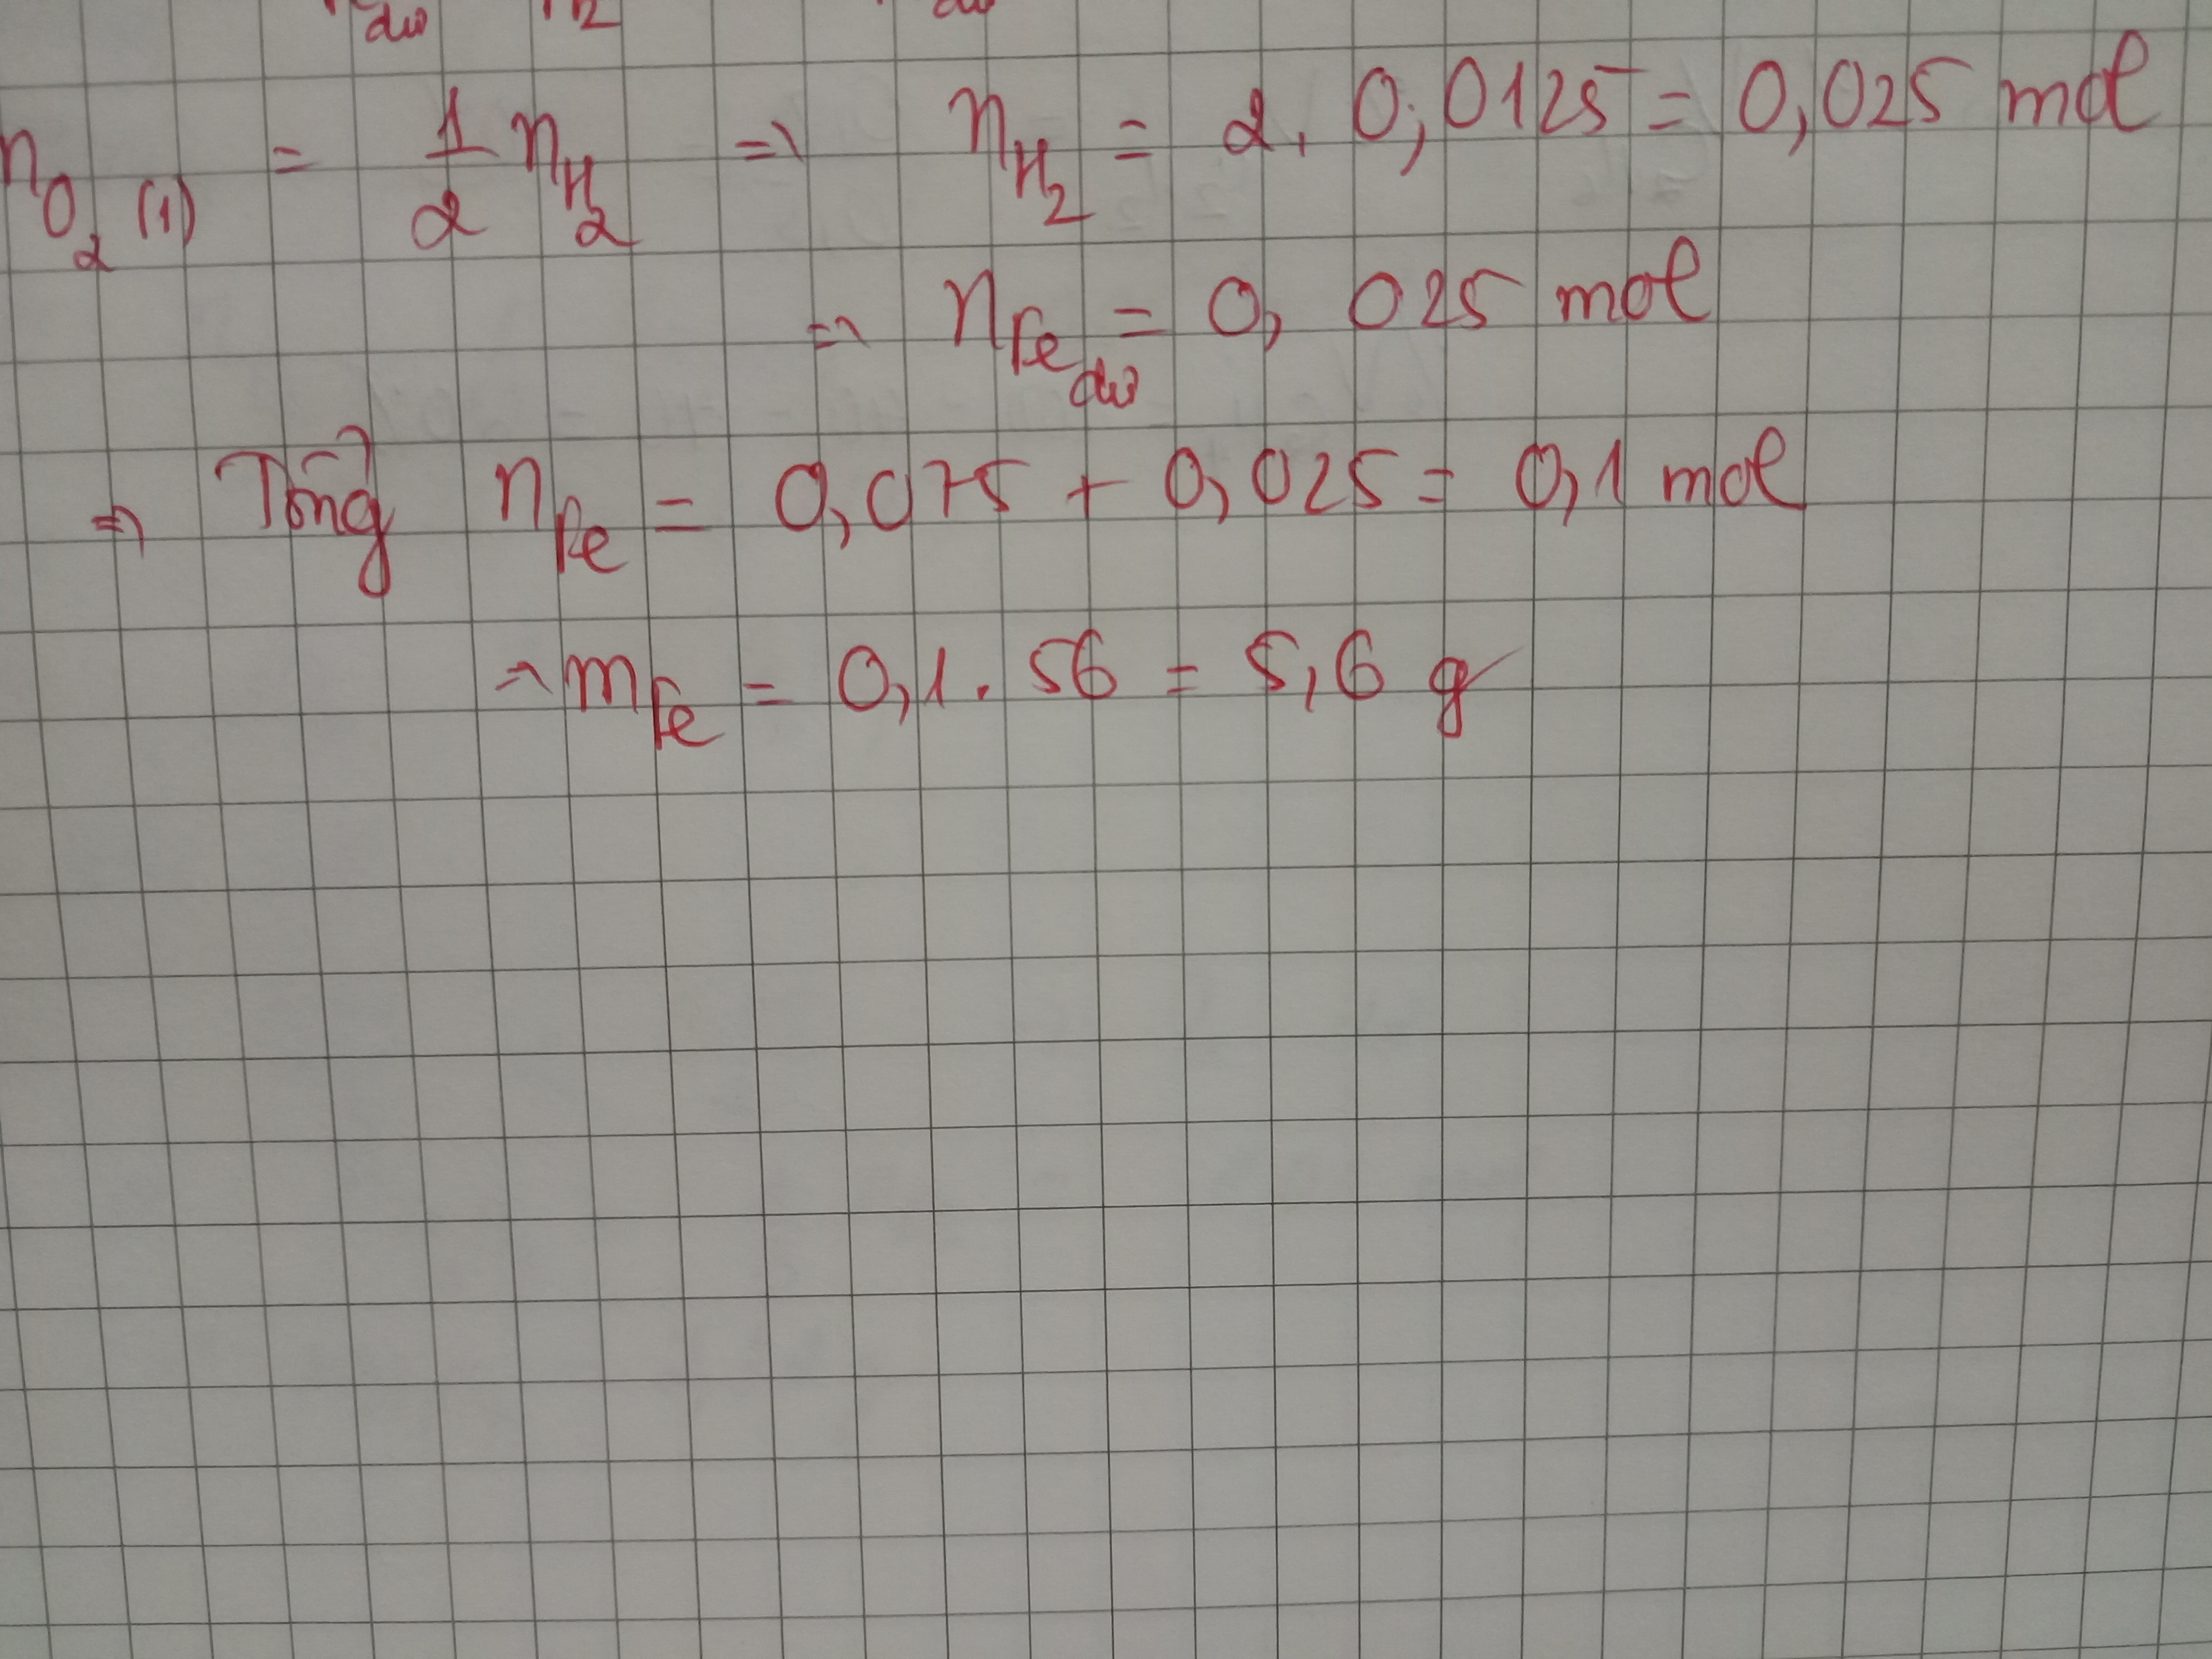 dư H2 dư
nO2 (1) = 1/2 nH2 => nH2 = 2. 0,0125 = 0,025 mol
=> nFe dư = 0,025 mol
=> Tổng nFe = 0,075 + 0,025 = 0,1 mol
=> mFe = 0,1. 56 = 5,6 g